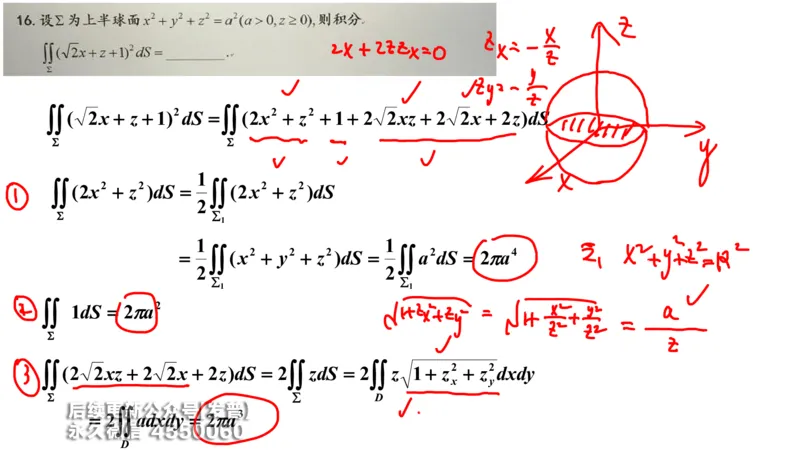 16. 设Σ为上半球面x² + y² + z² = a²(a > 0, z ≥ 0), 则积分
∬_Σ (√2x + z + 1)² dS = ________.
2x + 2z z_x = 0
z_x = -x/z
z_y = -y/z
∬_Σ (√2x + z + 1)² dS = ∬_Σ (2x² + z² + 1 + 2√2xz + 2√2x + 2z)dS
z
y
x
① ∬_Σ (2x² + z²)dS = 1/2 ∬_Σ₁ (2x² + z²)dS
= 1/2 ∬_Σ₁ (x² + y² + z²)dS = 1/2 ∬_Σ₁ a²dS = 2πa⁴
Σ₁ x² + y² + z² = R²
② ∬_Σ 1dS = 2πa²
√(1+z_x²+z_y²) = √(1+x²/z²+y²/z²) = a/z
③ ∬_Σ (2√2xz + 2√2x + 2z)dS = 2∬_Σ zdS = 2∬_D z√(1 + z_x² + z_y²)dxdy
= 2∬_D adxdy = 2πa³